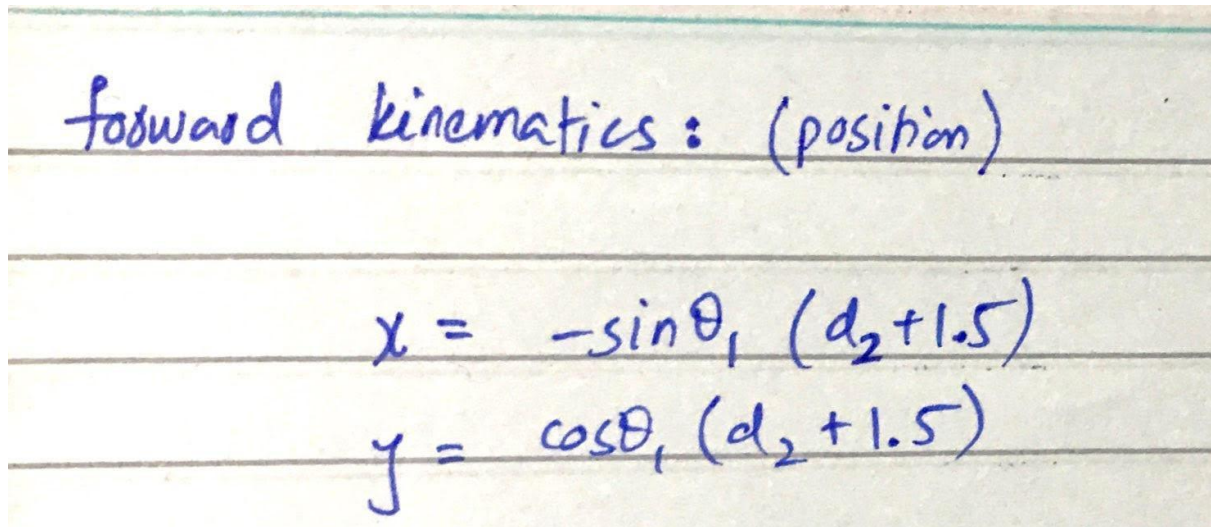 forward kinematics: (position)
x = -sinθ₁ (d₂+1.5)
y = cosθ₁ (d₂+1.5)